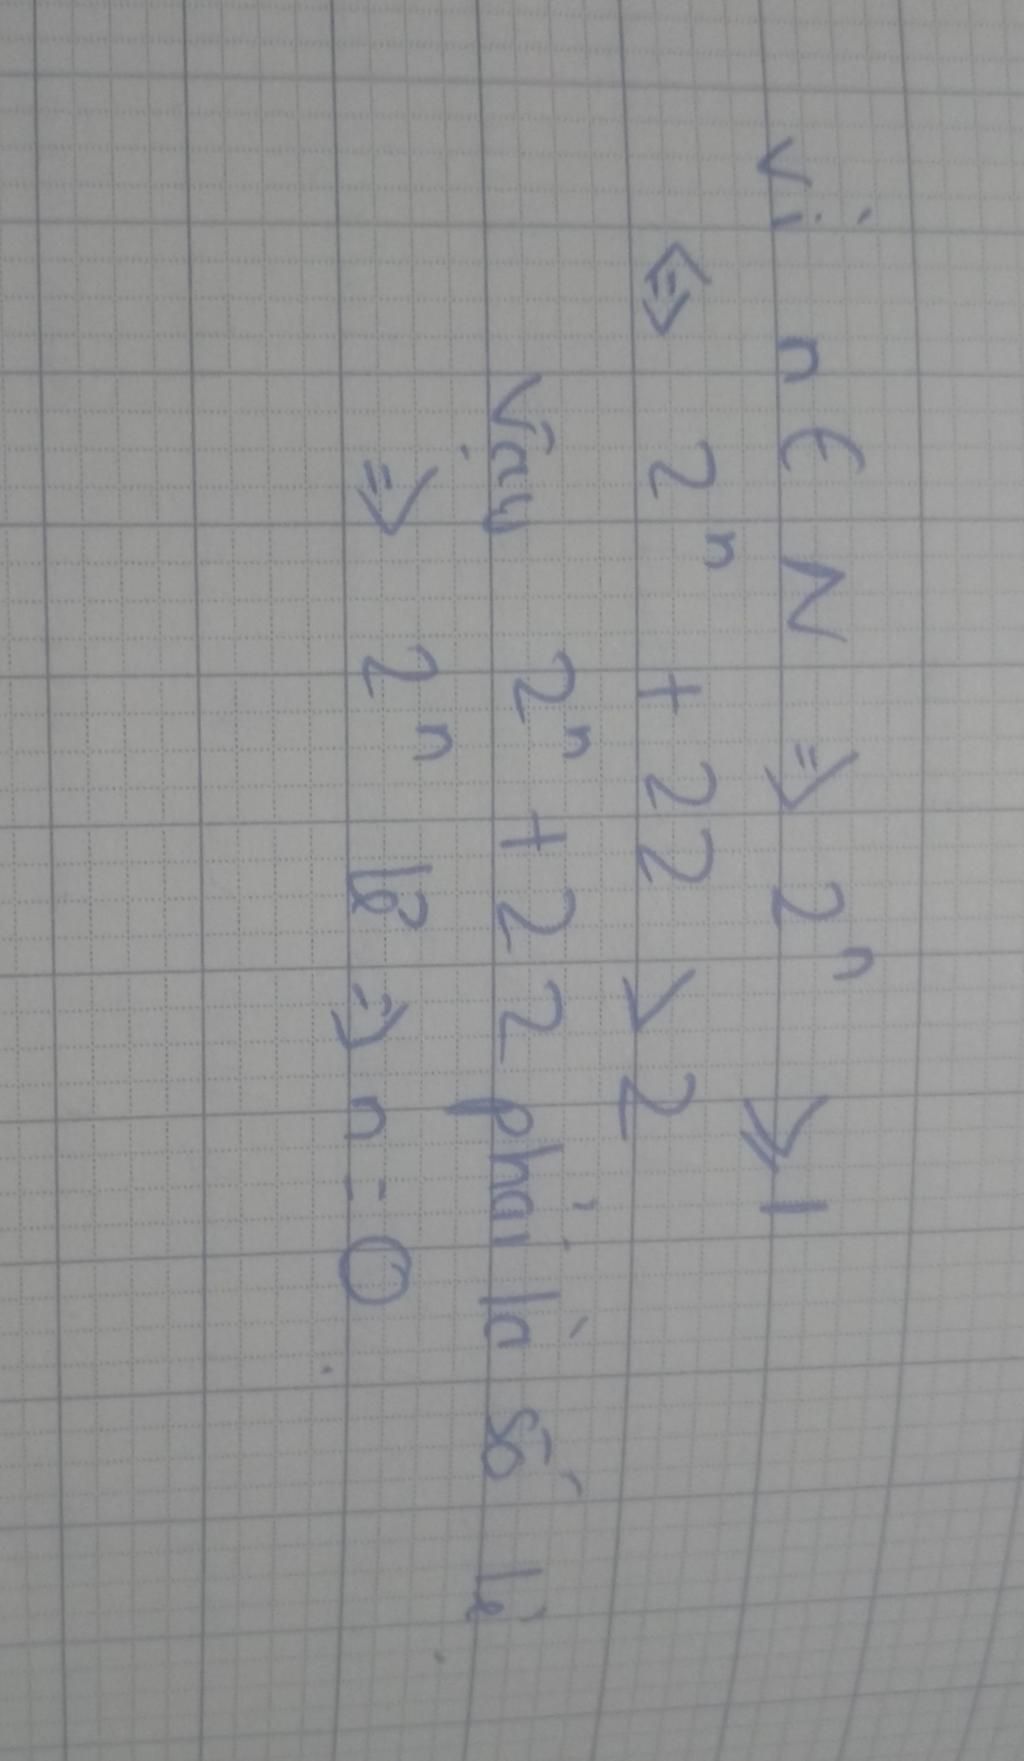 Vì n ∈ N ⇒ 2ⁿ ≥ 1
⇔ 2ⁿ + 22 > 2
Vậy 2ⁿ + 22 phải là số lẻ
⇒ 2ⁿ lẻ ⇒ n = 0.